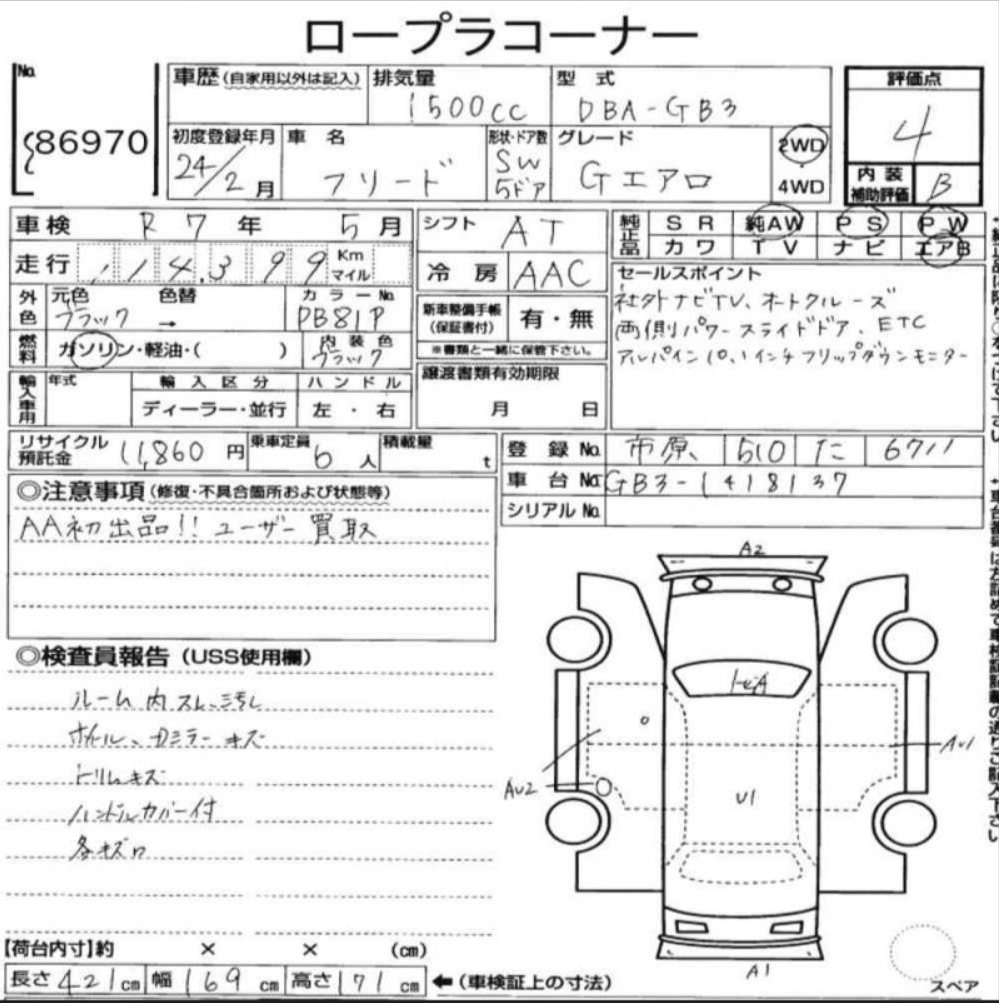 ロープラコーナー
No. 86970
車歴(自家用以外は記入) 排気量 1500cc 型式 DBA-GB3
評価点 4
初度登録年月 24/2月 車名 フリード 形状・ドア数 SW 5ドア グレード Gエアロ 2WD・4WD
内装補助評価 B
車検 R7年5月 シフト AT
純正品 SR 純AW PS PW
カワ TV ナビ エアB
走行 114,399 Km マイル 冷房 AAC
セールスポイント
社外ナビTV、オートクルーズ
両側パワースライドドア、ETC
アルパイン10.1インチフリップダウンモニター
外色 元色 ブラック 色替 → カラーNo. PB81P
新車整備手帳(保証書付) 有・無
※書類と一緒に保管下さい。
燃料 ガソリン・軽油・( ) 内装色 ブラック
譲渡書類有効期限
月 日
輸入車用 年式 輸入区分 ハンドル
ディーラー・並行 左・右
リサイクル預託金 11,860円 乗車定員 6人 積載量 t
登録No. 市原 510 た 6711
車台No. GB3-1418137
シリアルNo.
◎注意事項(修復・不具合箇所および状態等)
AA初出品!! ユーザー買取
◎検査員報告(USS使用欄)
ルーム内スレ、汚レ
ホイール、Dミラーキズ
トリムキズ
ハンドルカバー付
各キズ
A2
トビA
AU2
AU1
U1
A1
スペア
【荷台内寸】約 × × (cm)
長さ421cm 幅169cm 高さ171cm ←(車検証上の寸法)